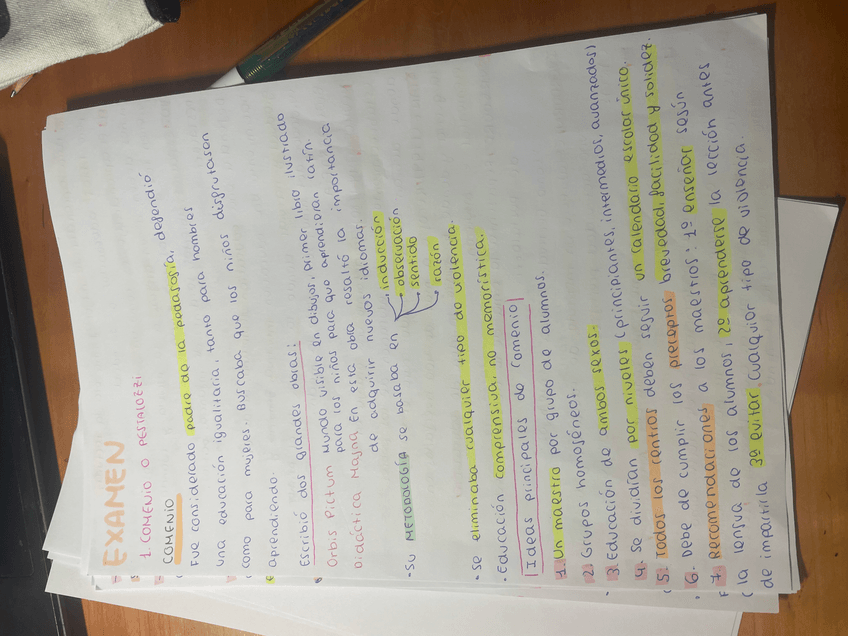 EXAMEN
1. COMENIO O PESTALOZZI
COMENIO
Fue considerado padre de la pedagogía, defendió
una educación igualitaria, tanto para hombres
como para mujeres. Buscaba que los niños disfrutasen
aprendiendo.
Escribió dos grandes obras:
Orbis Pictum Mundo visible en dibujos, primer libro ilustrado
para los niños para que aprendieran latín.
Didáctica Magna En esta obra resaltó la importancia
de adquirir nuevos idiomas.
·Su METODOLOGÍA se basaba en inducción
observación
sentido
razón
·Se eliminaba cualquier tipo de violencia.
·Educación comprensiva, no memorística.
Ideas principales de Comenio
1. Un maestro por grupo de alumnos.
2. Grupos homogéneos.
3. Educación de ambos sexos.
4. Se dividían por niveles (principiantes, intermedios, avanzados)
5. Todos los centros deben seguir un calendario escolar único.
6. Debe de cumplir los preceptos brevedad, facilidad y solidez.
7. Recomendaciones a los maestros: 1º enseñar según
la lengua de los alumnos, 2º aprenderse la lección antes
de impartirla 3º evitar cualquier tipo de violencia.